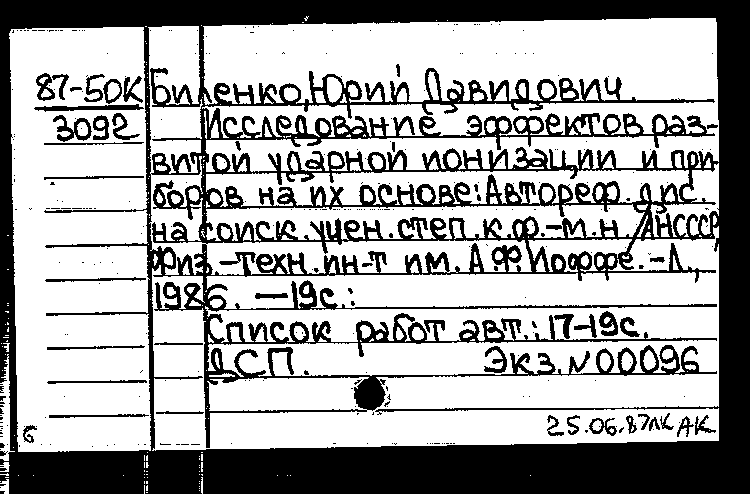 87-50К Биленко, Юрий Давидович.
3092 Исследование эффектов раз-
витой ударной ионизации и при-
боров на их основе: Автореф. дис.
на соиск. учен. степ. к.ф.-м.н. / АНСССР,
Физ.-техн. ин-т им. А.Ф. Иоффе. - Л.,
1986. — 19с.:
Список работ авт.: 17-19с.
ДСП. Экз. N 00096
25.06.87 АК
6